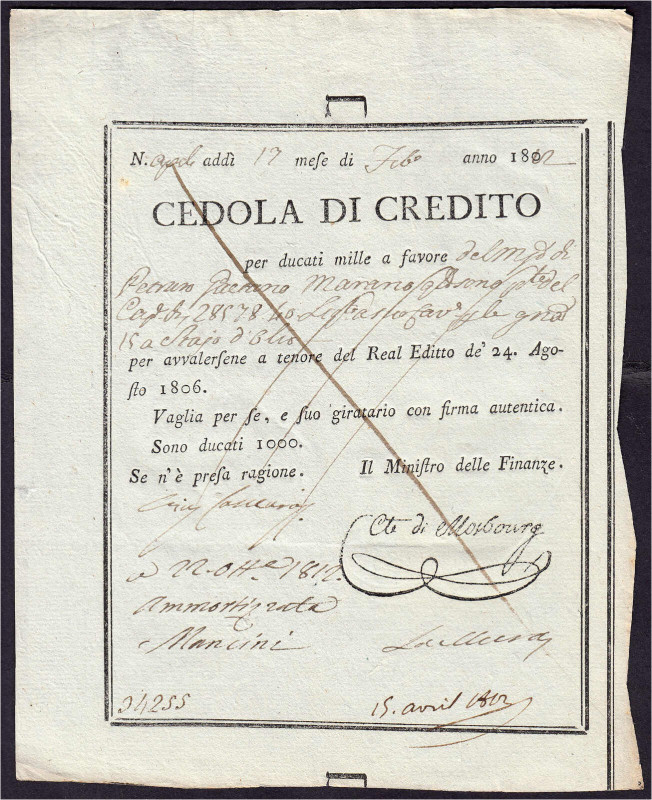 N.apli addì 17 meſe di Feb.o anno 1812
CEDOLA DI CREDITO
per ducati mille a favore del
Gaetano Marano
28578:40
15 a Stajo d'Olio
per avvalerſene a tenore del Real Editto de' 24. Ago-
ſto 1806.
Vaglia per ſe, e ſuo giratario con firma autentica.
Sono ducati 1000.
Se n'è preſa ragione. Il Miniſtro delle Finanze.
Cte di Mosbourg
a 22 Ott.e 1812.
Ammortizzata
Mancini
34255 15. avril 1812